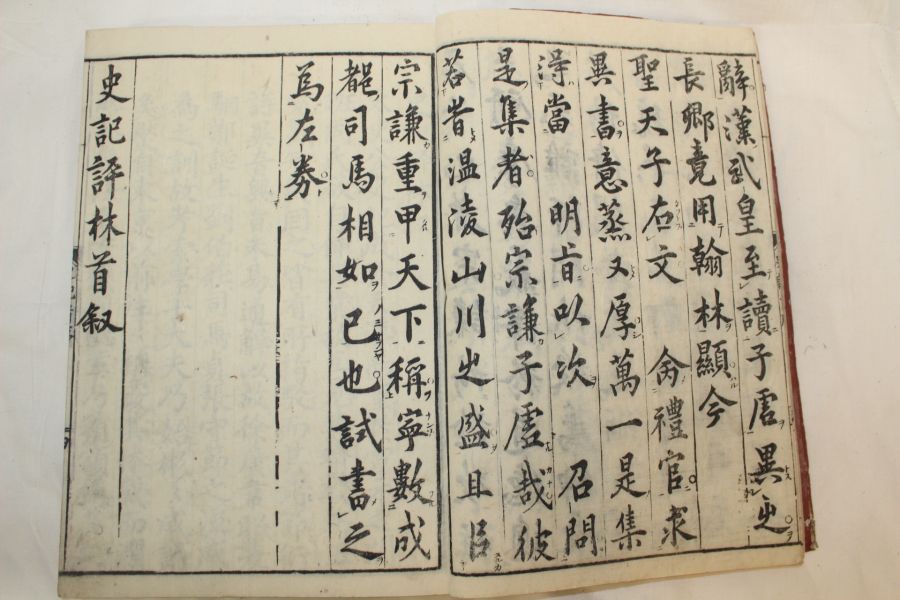 辭漢武皇至讀子虛異之
長卿竟用翰林顯今
聖天子右文 侖禮官求
異書意蒸々厚萬一是集
得當 明旨以次 召問
是集者殆宗謙子虛哉彼
若昔溫陵山川之盛且㠯
宗謙重甲天下稱寧數成
都司馬相如已也試書之
為左券
史記評林首叙